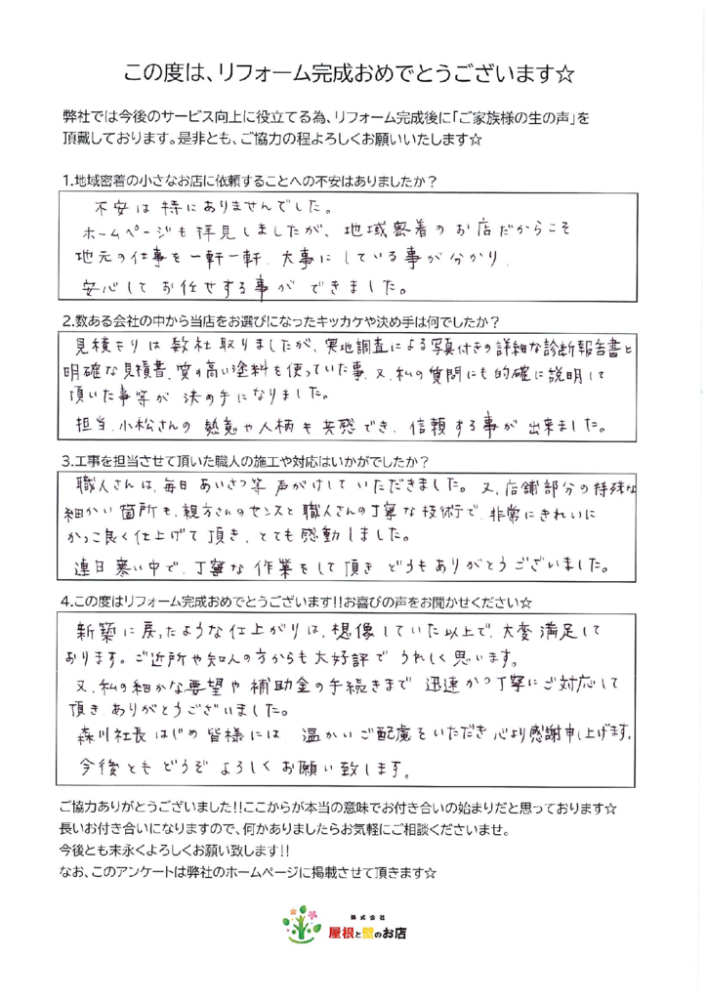 この度は、リフォーム完成おめでとうございます☆
弊社では今後のサービス向上に役立てる為、リフォーム完成後に「ご家族様の生の声」を
頂戴しております。是非とも、ご協力の程よろしくお願いいたします☆
1.地域密着の小さなお店に依頼することへの不安はありましたか？
不安は特にありませんでした。
ホームページも拝見しましたが、地域密着のお店だからこそ
地元の仕事を一軒一軒、大事にしている事が分かり、
安心してお任せする事ができました。
2.数ある会社の中から当店をお選びになったキッカケや決め手は何でしたか？
見積もりは数社取りましたが、実地調査による写真付きの詳細な診断報告書と
明確な見積書、質の高い塗料を使っていた事、又、私の質問にも的確に説明して
頂いた事等が決め手になりました。
担当、小松さんの熱意や人柄も共感でき、信頼する事が出来ました。
3.工事を担当させて頂いた職人の施工や対応はいかがでしたか？
職人さんは、毎日あいさつ等声がけしていただきました。又、店舗部分の特殊な
細かい箇所も、親方さんのセンスと職人さんの丁寧な技術で、非常にきれいに
かっこ良く仕上げて頂き、とても感動しました。
連日寒い中で、丁寧な作業をして頂きどうもありがとうございました。
4.この度はリフォーム完成おめでとうございます!!お喜びの声をお聞かせください☆
新築に戻ったような仕上がりは、想像していた以上で、大変満足して
おります。ご近所や知人の方からも大好評でうれしく思います。
又、私の細かな要望や補助金の手続きまで迅速かつ丁寧にご対応して
頂き、ありがとうございました。
森川社長はじめ皆様には、温かいご配慮をいただき心より感謝申し上げます。
今後ともどうぞよろしくお願い致します。
ご協力ありがとうございました!!ここからが本当の意味でお付き合いの始まりだと思っております☆
長いお付き合いになりますので、何かありましたらお気軽にご相談くださいませ。
今後とも末永くよろしくお願い致します!!
なお、このアンケートは弊社のホームページに掲載させて頂きます☆
株式会社
屋根と壁のお店